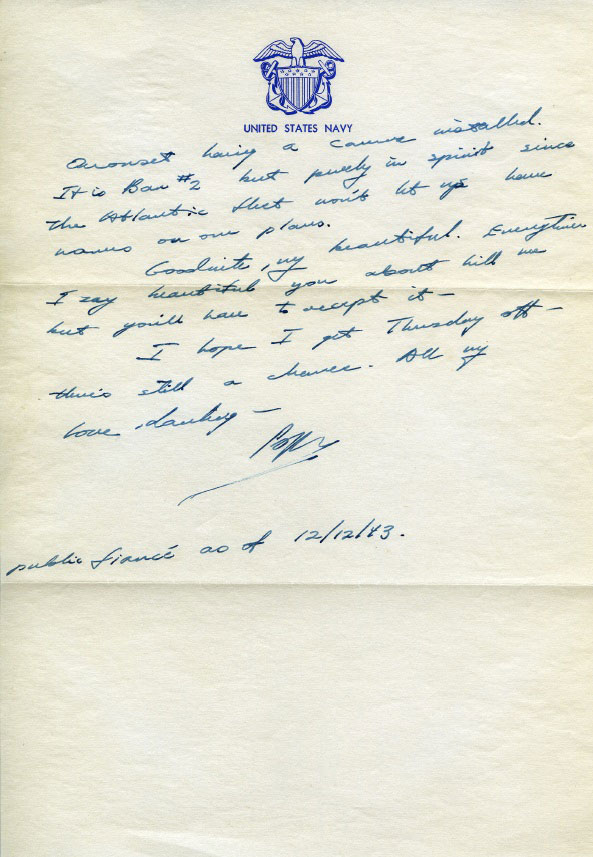 UNITED STATES NAVY
Quonset having a camera installed.
It is Bar #2 but purely in spirit since
the Atlantic fleet won't let us have
names on our planes.
Goodnite, my beautiful. Everytime
I say beautiful you about kill me
but you'll have to accept it—
I hope I get Thursday off—
there's still a chance. All my
love, darling—
Poppy
public fiancé as of 12/12/43.